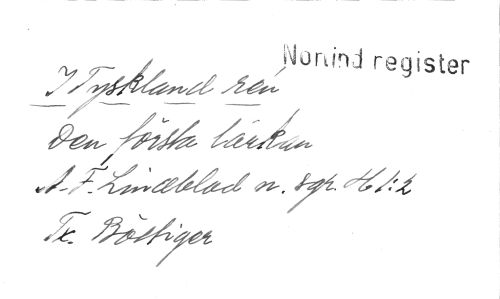 Nonind register
I Tyskland rén
Den första lärkan
A. F. Lindblad n. sgr. H 1:2
Tx. Böttiger